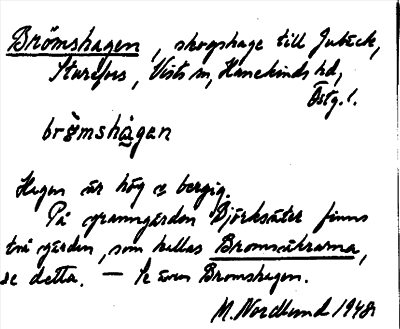 Brömshagen, skogshage till Jubäck,
Sturefors, Vists sn, Hanekinds hd,
Östg. l.
brö̀mshàgan
Hagen är hög o bergig.
På granngården Björksäter finns
två gärden, som kallas Bromsåkrarna,
se detta. — Se även Bromshagen.
M. Nordlund 1948